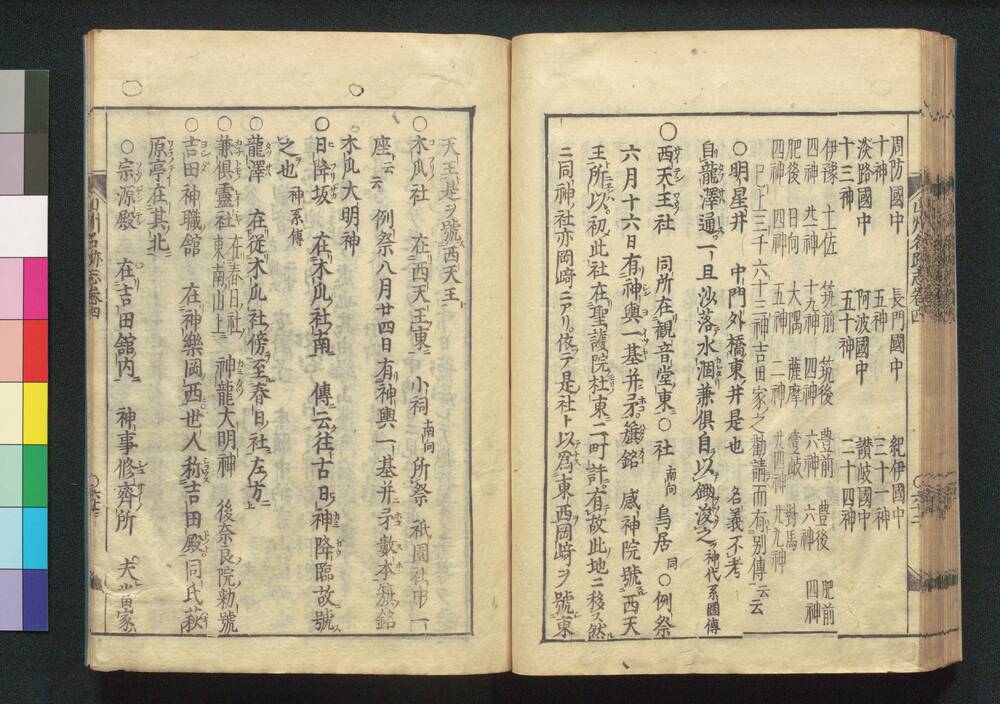 周防國中　長門國中　紀伊國中
十神　五神　三十一神
淡路國中　阿波國中　讃岐國中
十三神　五十神　二十四神
伊豫　土佐　筑前　筑後　豊前　豊後　肥前
四神　廿一神　十九神　四神　六神　六神　四神
肥後　日向　大隅　薩摩　壹岐　對馬
四神　四神　五神　二神　廿四神　廿九神
已上三千六十三神吉田家之勸請而有別傳云云
○明星井　中門外橋東ノ井是也　名義不考
自龍澤通一旦沙落水涸兼俱自以鋤浚之神代系圖傳
○西天王社　同所在觀音堂東○社南向　鳥居同○例祭
六月十六日有神輿一基并矛旗銘　感神院號西天
王所以初此社在聖護院社東二町許有故此地ニ移ス然
ニ同神社亦岡﨑ニアリ依テ是社ト以爲東西岡﨑ヲ號東
天王是ヲ號西天王
○木瓜社　在西天王東　小祠南向　所祭祇園社中一
座云云　例祭八月廿四日有神輿一基并矛數本旗銘
木瓜大明神
○日降坂　在木瓜社南　傳云往古日神降臨故號
之也　神系傳
○龍澤　在從木瓜社傍至春日社左方
○兼俱靈社　在春日社東南山上　神龍大明神　後奈良院勅號
○吉田神職館　在神樂岡西世人称吉田殿同氏萩
原亭在其北
○宗源殿　在吉田舘内　神事修齊所　犬當家
山州名跡志卷四